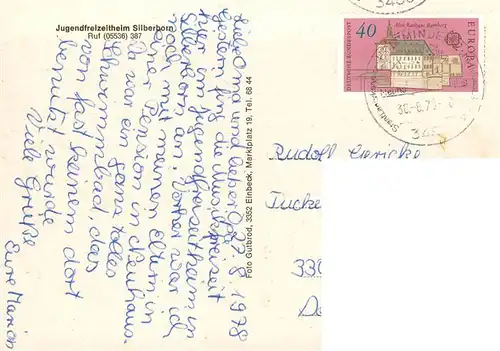 Jugendfreizeitheim Silberborn
Ruf (05536) 387
27. 8. 1978
Liebe Oma und lieber Opa
Gestern fing die Musikfreizeit
hier im Jugendfreizeitheim in
Silberborn an. Vorher war ich
noch mit meinen Eltern in
einer Pension in
Da war ein ganz tolles
Schwimmbad, das
von fast keinem dort
benutzt wurde
Viele Grüße
Eure Marion
Foto Gutbrod, 3352 Einbeck, Marktplatz 19, Tel. 68 44
Altes Rathaus Bamberg
40
EUROPA
DEUTSCHE BUNDESPOST
30.-8.78
345
Rudolf Gericke
Tucke
330